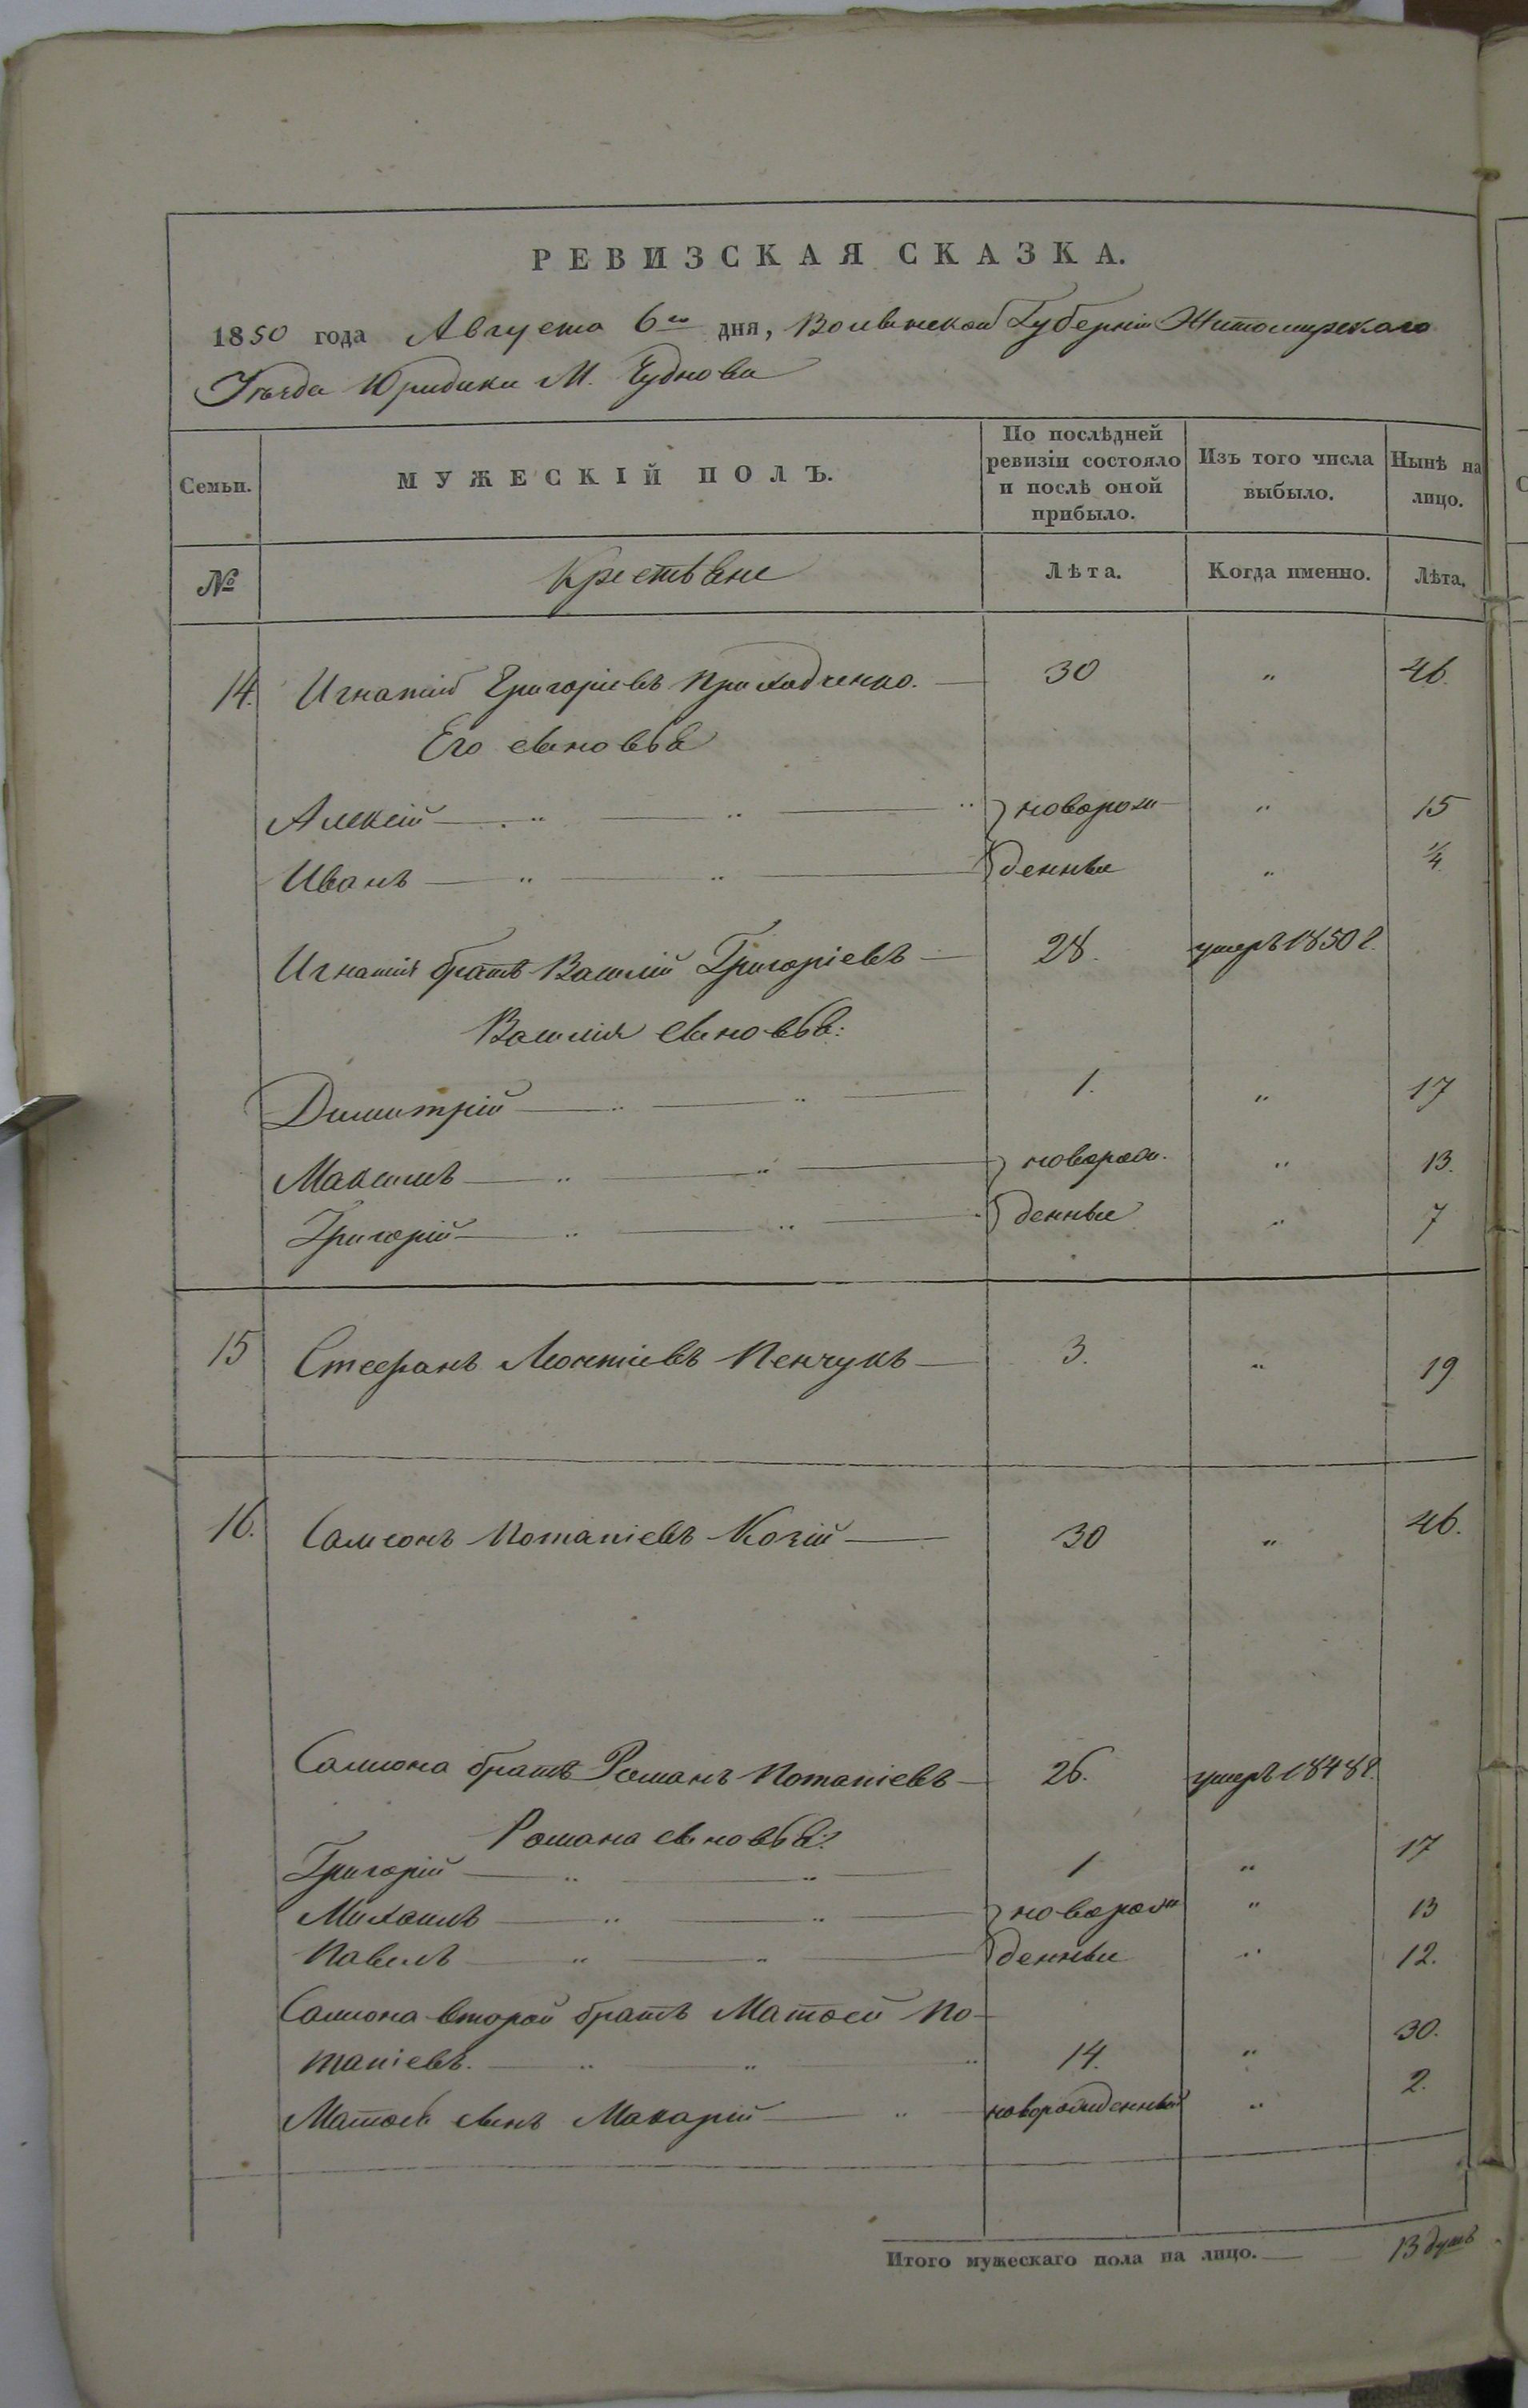 РЕВИЗСКАЯ СКАЗКА.
1850 года Августа 6го дня, Волынской Губерніи Житомирскаго
Уѣзда Юридики М. Чуднова
Семьи.
МУЖЕСКІЙ ПОЛЪ.
По послѣдней
ревизіи состояло
и послѣ оной
прибыло.
Изъ того числа
выбыло.
Нынѣ на
лицо.
№ Крестьяне Лѣта. Когда именно. Лѣта.
14. Игнатій Григоріевъ Приходченко. — 30 " 46.
Его сыновья
Алексѣй — " — " — " } новорож " 15
Иванъ — " — " — } денные " 1/4
Игнатія братъ Василій Григоріевъ — 28. умеръ 1850 г.
Василія сыновья:
Димитрій — " — " — 1. " 17
Максимъ — " — " — } новорож. " 13.
Григорій — " — " — } денные " 7
15 Стефанъ Леонтіевъ Пенчукъ — 3. " 19
16. Самсонъ Потапіевъ Козій — 30 " 46.
Самсона братъ Романъ Потапіевъ — 26. умеръ 1848 г.
Романа сыновья:
Григорій — " — " — 1 " 17
Михаилъ — " — " — } новорож " 13
Павелъ — " — " — } денные " 12.
Самсона второй братъ Матвей По-
тапіевъ. — " — " — " 14. " 30.
Матвея сынъ Макарій — " — новорожденный " 2.
Итого мужескаго пола на лицо. — 13 душъ